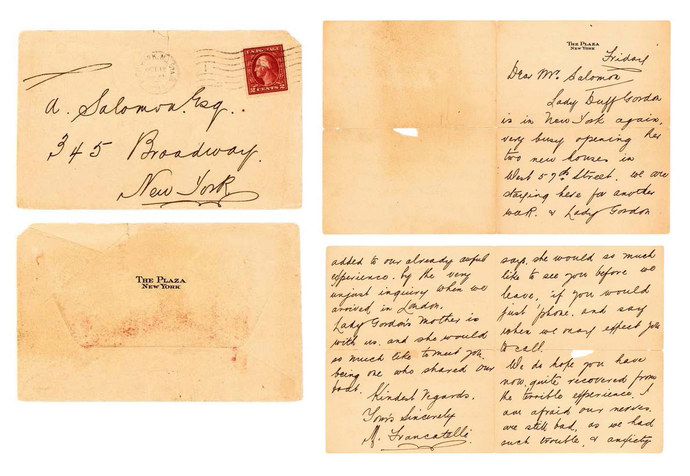 A. Salomon. Esq..
345 Broadway.
New York
U.S. POSTAGE
2 CENTS 2
THE PLAZA
NEW YORK
THE PLAZA
NEW YORK
Friday
Dear Mr. Salomon
Lady Duff Gordon
is in New York again,
very busy opening her
two new houses in
West 57th Street. we are
staying here for another
week. & Lady Gordon
says, she would so much
like to see you before we
leave, if you would
just 'phone, and say
when we may expect you
to call.
We do hope you have
now, quite recovered from
the terrible experience. I
am afraid our nerves.
are still bad, as we had
such trouble, & anxiety
added to our already awful
experience. by the very
unjust inquiry when we
arrived in London.
Lady Gordon's Mother is
with us, and she would
so much like to meet you,
being one who shared our
boat.
Kindest regards.
Yours Sincerely
M. Francatelli.